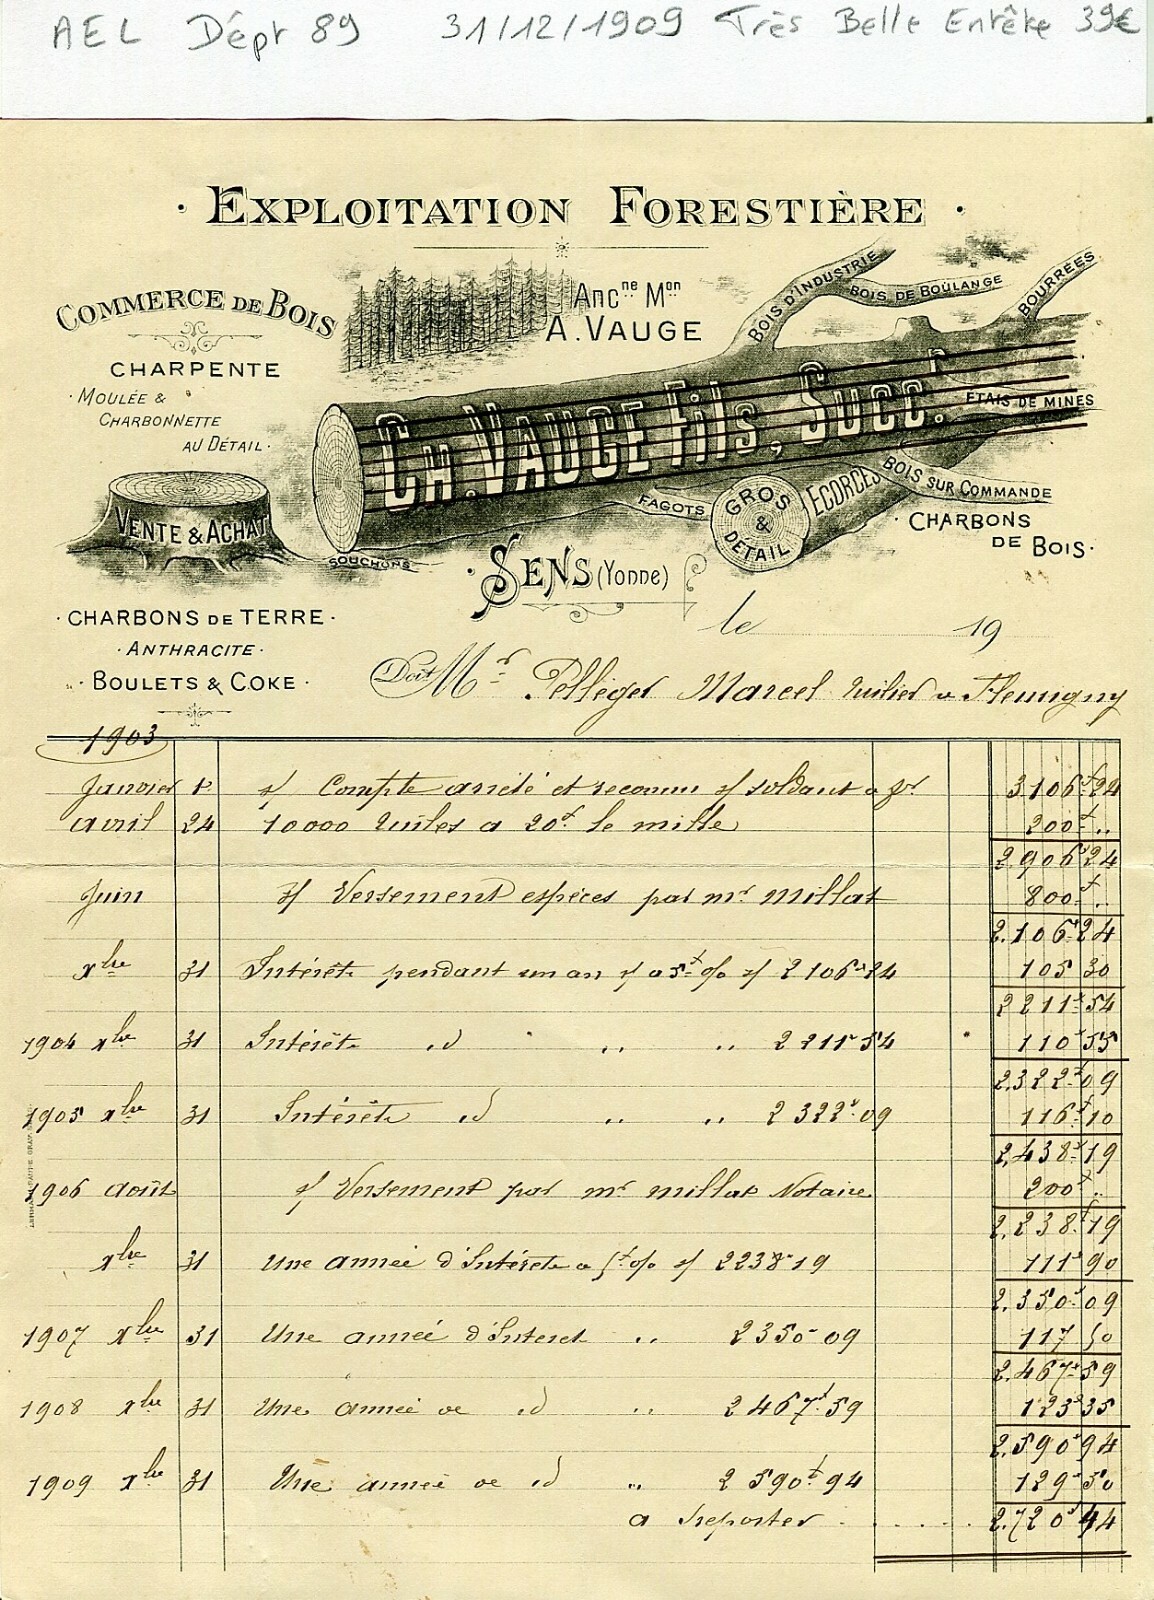 AEL Dépt 89 31/12/1909 Très Belle Entête 39€
· EXPLOITATION FORESTIÈRE ·
COMMERCE DE BOIS
CHARPENTE
· MOULÉE &
CHARBONNETTE
AU DÉTAIL ·
VENTE & ACHAT
SOUCHONS
Ancne Mon
A. VAUGE
BOIS D'INDUSTRIE
BOIS DE BOULANGE
BOURRÉES
CH. VAUGE Fils, SUCCr.
ETAIS DE MINES
BOIS SUR COMMANDE
FAGOTS
GROS
&
DÉTAIL
ECORCES
· CHARBONS
DE BOIS ·
· SENS (Yonne)
· CHARBONS DE TERRE ·
· ANTHRACITE ·
· BOULETS & COKE ·
le 19
Doit Mr Pelléger Marcel tuilier a Fleurigny
1903
Janvier 1r s/ Compte arrêté et reconnu s/ soldant a fr 3106f24
avril 24 10000 tuiles a 20f le mille 200f ..
2.906f24
Juin s/ Versement espèces par mr Millat 800f ..
2.106f24
xbre 31 Intérêts pendant un an s/ a 5f % s/ 2106f24 105 30
2211f54
1904 xbre 31 Intérêts id " .. .. 2211f54 110f55
2.322f09
1905 xbre 31 Intérêts id .. .. 2322f09 116f10
2.438f19
1906 août s/ Versement par mr Millat Notaire 200f ..
2.238f19
xbre 31 Une année d'Intérêts a 5f % s/ 2238f19 111f90
2.350f09
1907 xbre 31 Une année d'Interet .. 2350f09 117 50
2.467f59
1908 xbre 31 Une année de id .. 2467f59 123f35
2.590f94
1909 xbre 31 Une année de id .. 2590f94 129f50
a reporter . . . . . . 2.720f44